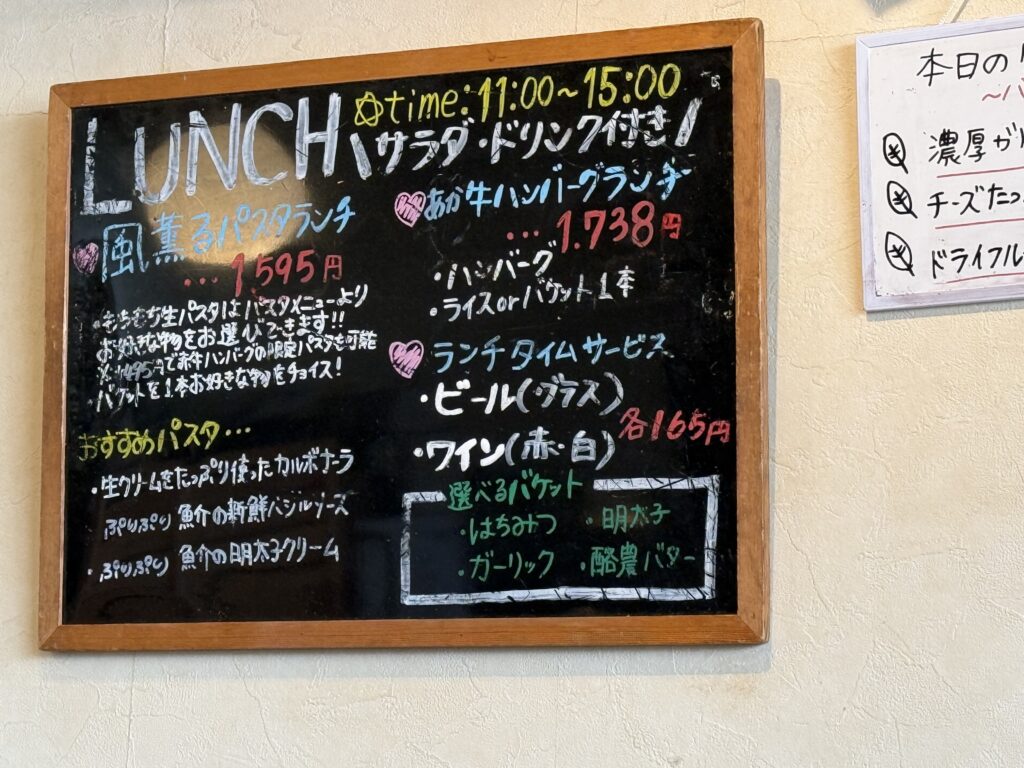 LUNCH
☆time:11:00~15:00
\サラダ・ドリンク付き/
風薫るパスタランチ
…1595円
・もちもち生パスタはパスタメニューより
お好きな物をお選びできます!!
で赤牛ハンバーグの限定パスタも可能
・バケットを1本お好きな物をチョイス!
おすすめパスタ…
・生クリームをたっぷり使ったカルボナーラ
ぷりぷり魚介の新鮮バジルソース
・ぷりぷり魚介の明太子クリーム
あか牛ハンバーグランチ
…1.738円
・ハンバーグ
・ライスorバケット1本
ランチタイムサービス
・ビール(グラス)
・ワイン(赤・白)
各165円
選べるバケット
・はちみつ ・明太子
・ガーリック ・酪農バター
本日の
濃厚
チーズたっ
ドライフル